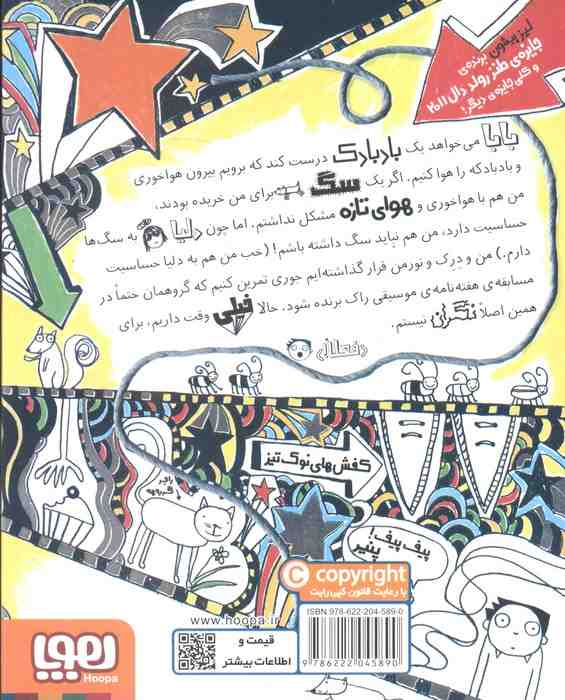 لیز پیشون برنده‌ی
جایزه‌ی طنز رولد دال ۲۰۱۱
و کلی جایزه‌ی دیگر!
بابا می‌خواهد یک بادبادک درست کند که برویم بیرون هواخوری
و بادبادکه را هوا کنیم. اگر یک سگ برای من خریده بودند،
من هم با هواخوری و هوای تازه مشکل نداشتم. اما چون دلیا به سگ‌ها
حساسیت دارد، من هم نباید سگ داشته باشم! (خب من هم به دلیا حساسیت
دارم.) من و درک و نورمن قرار گذاشته‌ایم جوری تمرین کنیم که گروهمان حتماً در
مسابقه‌ی هفته‌نامه‌ی موسیقی راک برنده شود. حالا خیلی وقت داریم، برای
همین اصلاً نگران نیستم.
کفش‌های نوک تیز
پیف پیف!
پنیر
C copyright
با رعایت قانون کپی‌رایت
ISBN: 978-622-204-589-0
9 786222 045890
www.hoopa.ir
قیمت و
اطلاعات بیشتر
هوپا
Hoopa